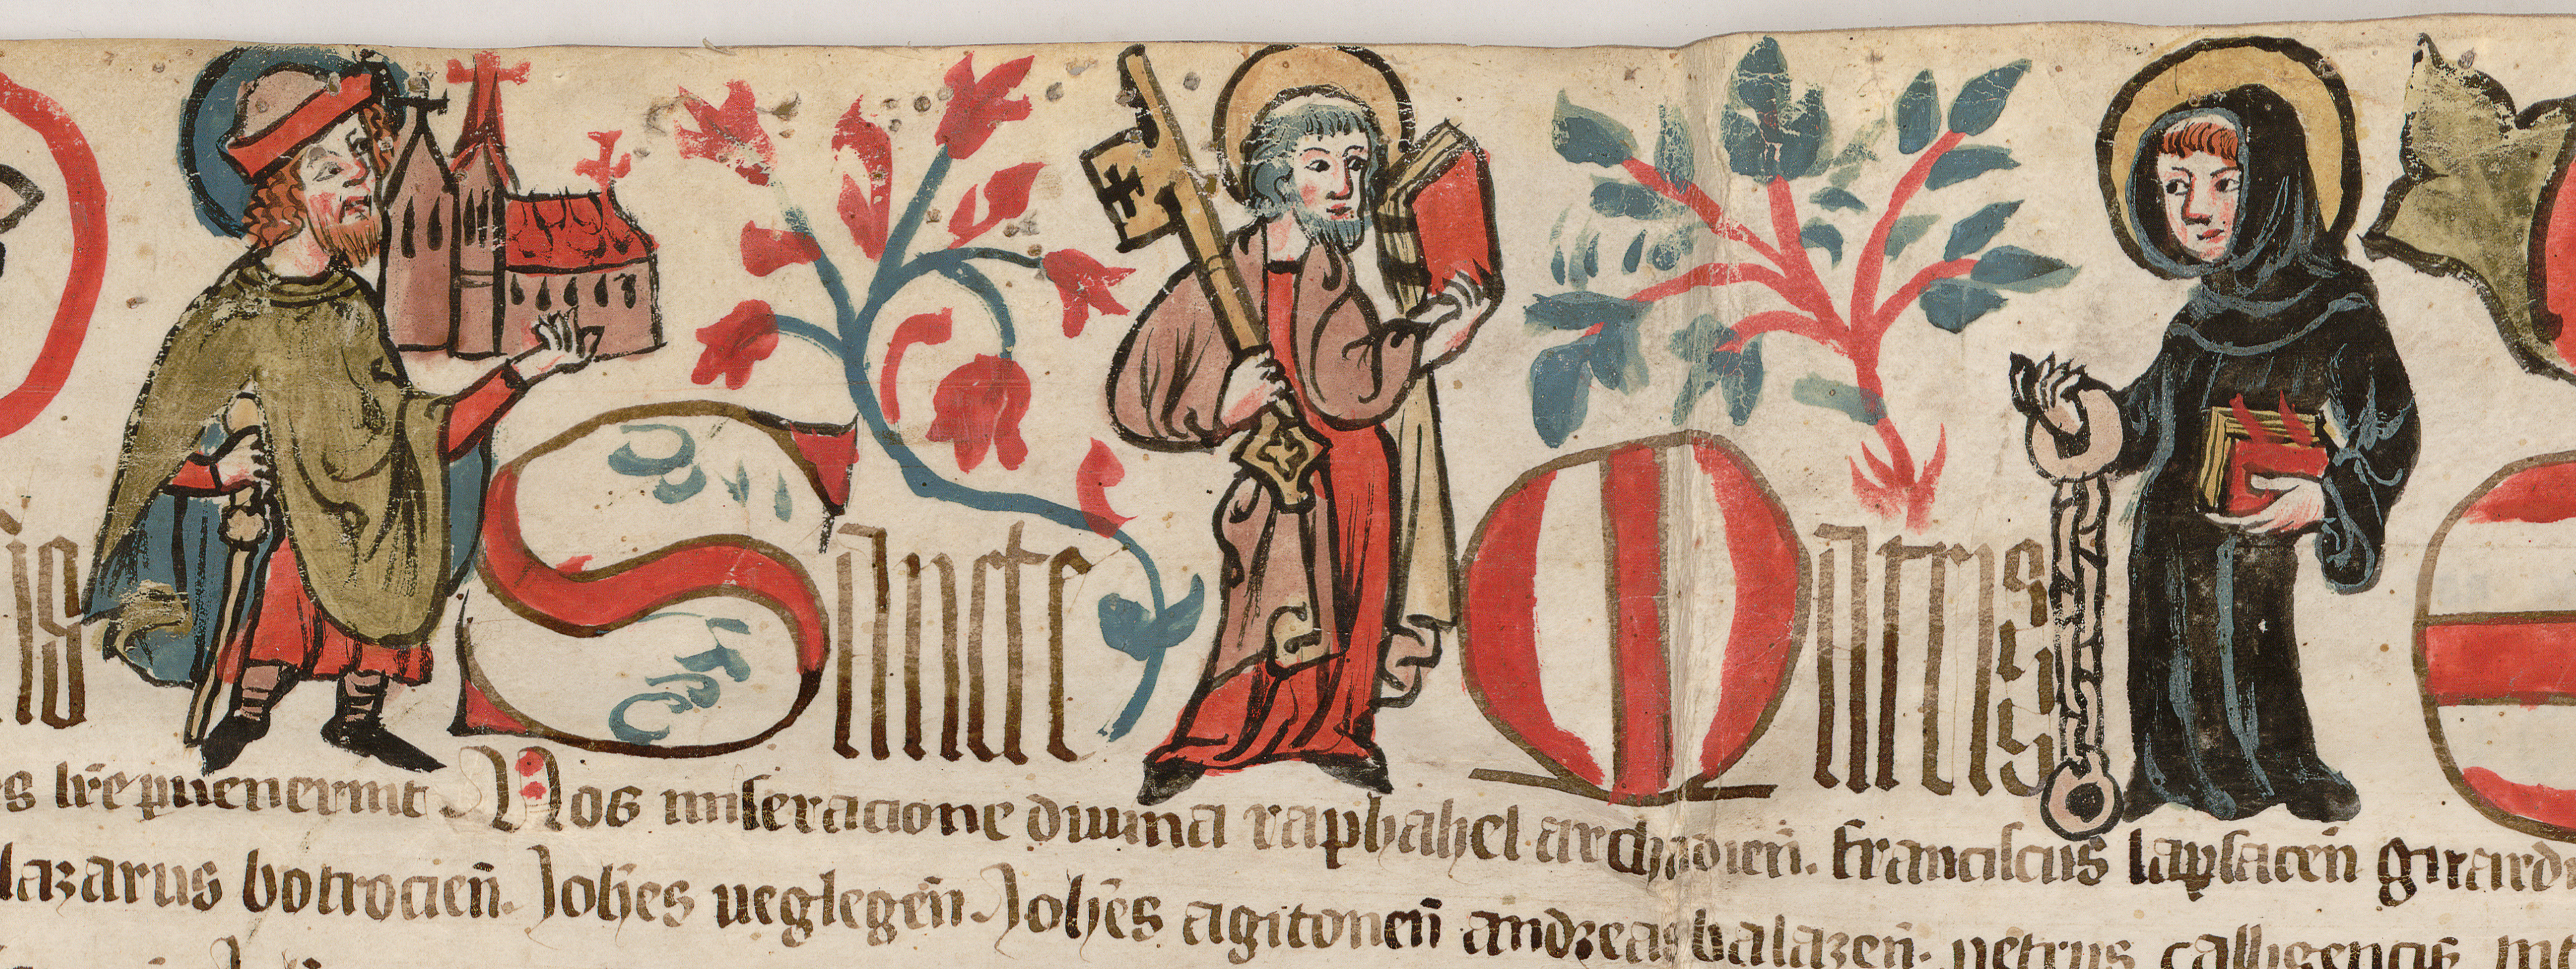 is Sancte Matris
s lr̄e puenerint Nos miseracione diuina raphahel archadien̄. Franciscus lapsacen̄ girard
lazarus botrocien̄. Joh̄es ueglegen̄. Joh̄es agitonen̄ andreas balazen̄. petrus calligencis